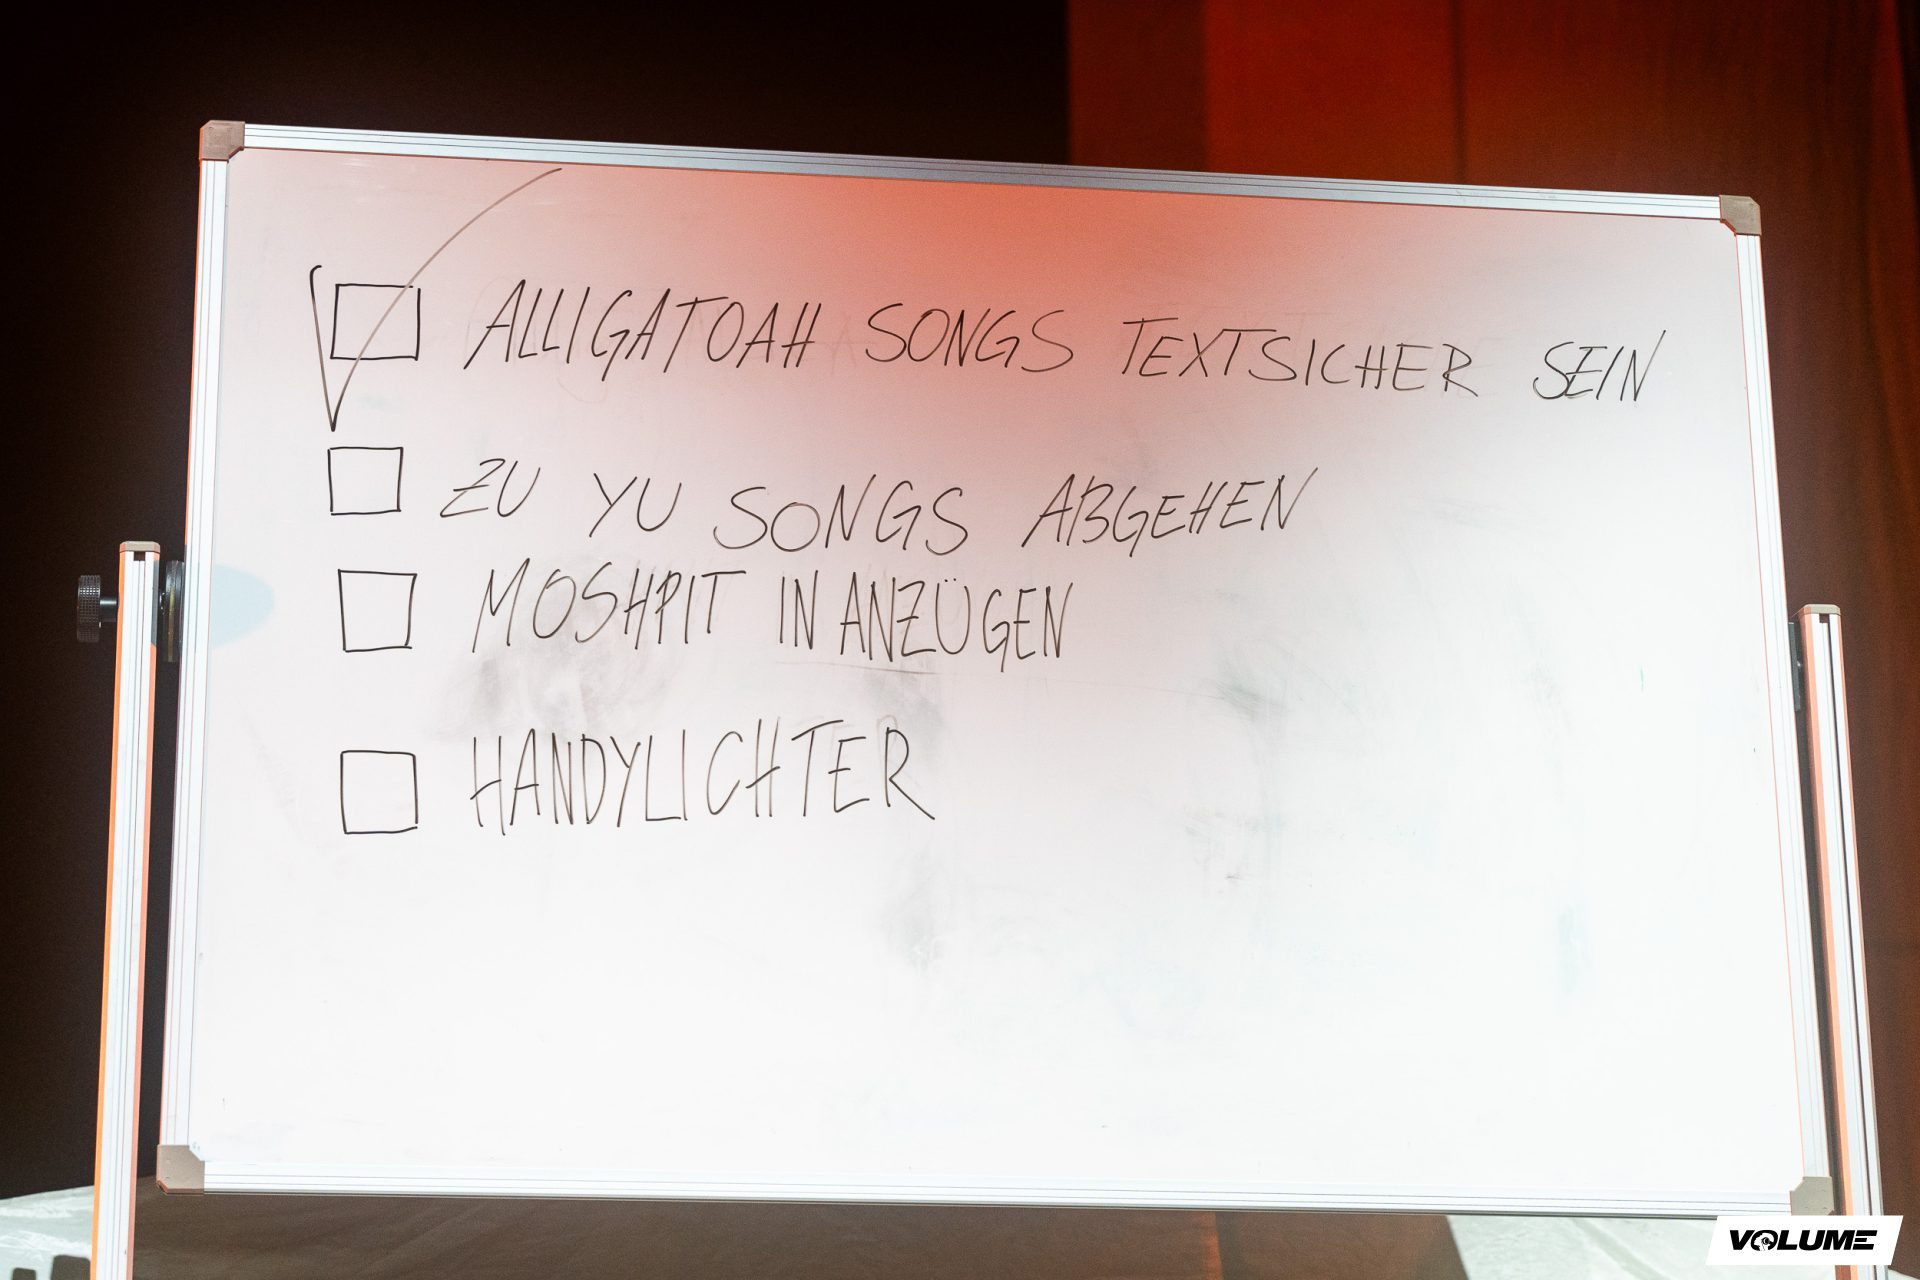 ALLIGATOAH SONGS TEXTSICHER SEIN
ZU YU SONGS ABGEHEN
MOSHPIT IN ANZÜGEN
HANDYLICHTER
VOLUME